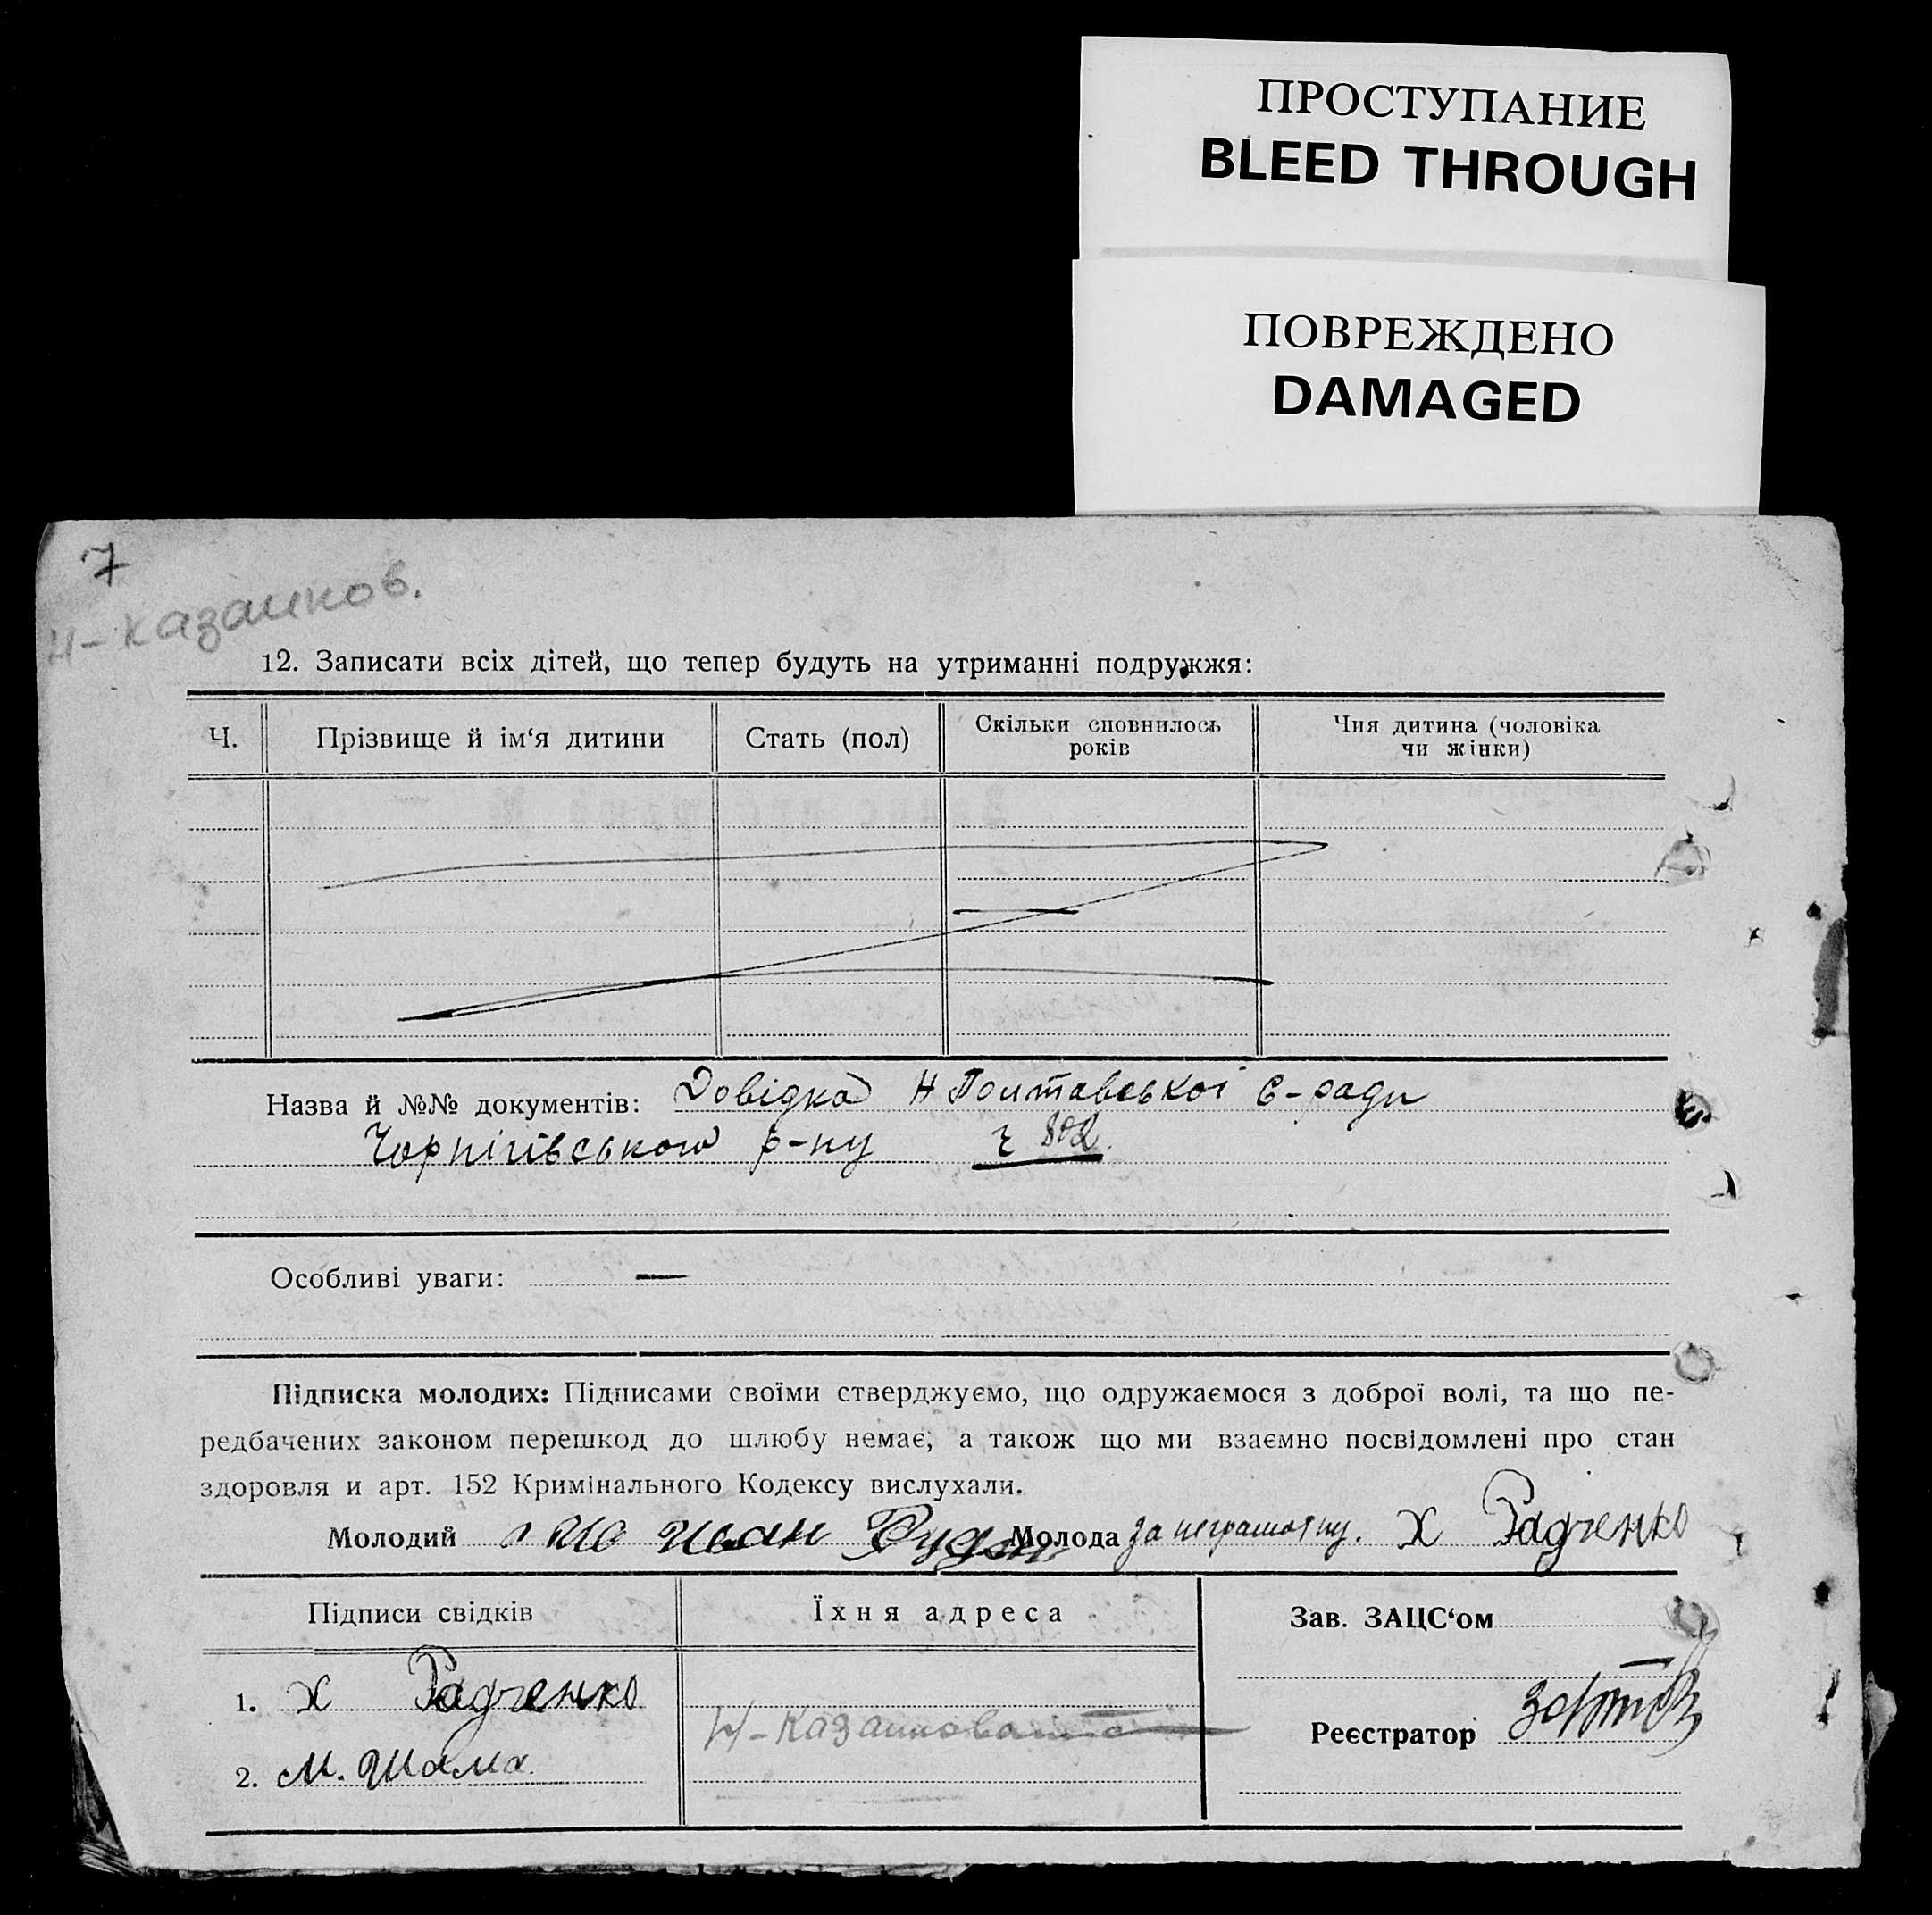 ПРОСТУПАНИЕ
BLEED THROUGH
ПОВРЕЖДЕНО
DAMAGED
7
Н-Казанков.
12. Записати всіх дітей, що тепер будуть на утриманні подружжя:
Ч. Прізвище й ім‘я дитини Стать (пол) Скільки сповнилось років Чия дитина (чоловіка чи жінки)
Назва й №№ документів: Довідка Н Полтавської С-ради
Чернігівського р-ну ч 802
Особливі уваги: —
Підписка молодих: Підписами своїми стверджуємо, що одружаємося з доброї волі, та що пе-
редбачених законом перешкод до шлюбу немає, а також що ми взаємно посвідомлені про стан
здоровля и арт. 152 Кримінального Кодексу вислухали.
Молодий Иван Молода за неграмотну. Х Радченко
Підписи свідків Їхня адреса Зав. ЗАЦС‘ом
1. Х Радченко
Н-Казанковаг
Реєстратор
2. М. Шама